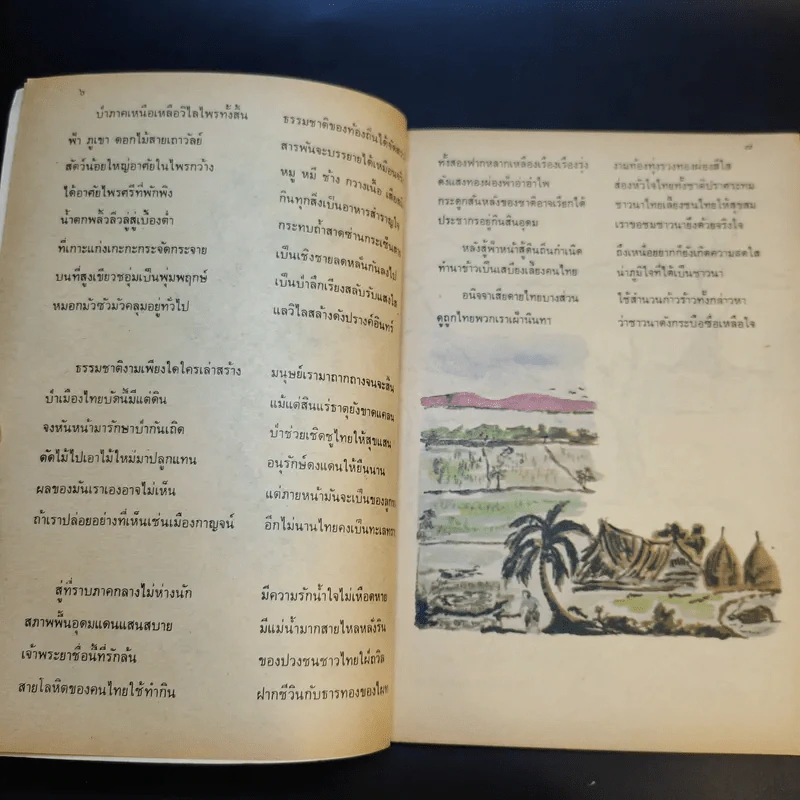 ๖
ป่าภาคเหนือเหลือวิไลไพรทั้งสิ้น ธรรมชาติของท้องถิ่นได้
ฟ้า ภูเขา ดอกไม้สายเถาวัลย์ สารพันจะบรรยายได้เหมือน
สัตว์น้อยใหญ่อาศัยในไพรกว้าง หมู หมี ช้าง กวางเนื้อ
ได้อาศัยไพรศรีที่พักพิง กินทุกสิ่งเป็นอาหารสำราญใจ
น้ำตกพลิ้วลิ่วสู่สู่เบื้องต่ำ กระทบถ้ำสาดซ่านกระเซ็น
ที่เกาะแก่งเกะกะกระจัดกระจาย เป็นเชิงชายลดหลั่นกันลงไป
บนที่สูงเขียวชอุ่มเป็นพุ่มพฤกษ์ เป็นป่าลึกเรียงสลับรับแสงใส
หมอกมัวซัวมัวคลุมอยู่ทั่วไป แลวิไลสล้างดังปรางค์อินทร์
ธรรมชาติงามเพียงใดใครเล่าสร้าง มนุษย์เรามาถากถางจนจะสิ้น
ป่าเมืองไทยบัดนี้มีแต่ดิน แม้แต่สินแร่ธาตุยังขาดแคลน
จงหันหน้ามารักษาป่ากันเถิด ป่าช่วยเชิดชูไทยให้สุขแสน
ตัดไม้ไปเอาไม้ใหม่มาปลูกแทน อนุรักษ์ดงแดนให้ยืนนาน
ผลของมันเราเองอาจไม่เห็น แต่ภายหน้ามันจะเป็นของลูก
ถ้าเราปล่อยอย่างที่เห็นเช่นเมืองกาญจน์ อีกไม่นานไทยคงเป็นทะเล
สู่ที่ราบภาคกลางไม่ห่างนัก มีความรักน้ำใจไม่เหือดหาย
สภาพพื้นอุดมแดนแสนสบาย มีแม่น้ำมากสายไหลหลั่งริน
เจ้าพระยาชื่อนี้ที่รักล้น ของปวงชนชาวไทยใฝ่ถวิล
สายโลหิตของคนไทยใช้ทำกิน ฝากชีวินกับธารทองของ
๗
ทั้งสองฟากหลากเหลืองเรืองเรืองรุ่ง งามท้องทุ่งรวงทองผ่องสีใส
ดังแสงทองผ่องฟ้าอ่าอำไพ ส่องหัวใจไทยทั้งชาติปราศระทม
กระดูกสันหลังของชาติอาจเรียกได้ ชาวนาไทยเลี้ยงชนไทยให้สุขสม
ประชากรอยู่กินสินอุดม เราขอชมชาวนายิ่งด้วยจริงใจ
หลังสู้ฟ้าหน้าสู้ดินถิ่นกำเนิด ถึงเหนื่อยยากก็ยังเกิดความสดใส
ทำนาข้าวเป็นเสบียงเลี้ยงคนไทย น่าภูมิใจที่ได้เป็นชาวนา
อนิจจาเสียดายไทยบางส่วน ใช้สำนวนก้าวร้าวทั้งกล่าวหา
ดูถูกไทยพวกเราเฝ้านินทา ว่าชาวนาดังกระบือซื่อเหลือใจ